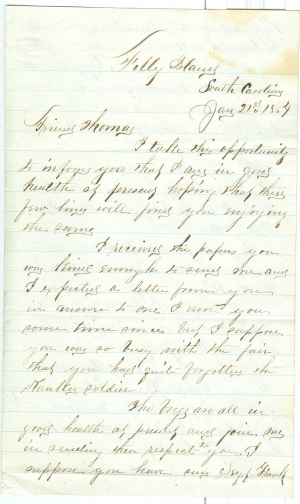 Folly Island
South Carolina
Jan 21st 1864
Friend Thomas
I take this opportunity
to inform you that I am in good
health at present hoping that these
few lines will find you enjoying
the same
I received the papers you
was kind enough to send me and
I expected a letter from you
in answer to one I sent you
some time since but I suppose
you was so busy with the fair
that you had quite forgotten the
soldier
The boys are all in
good health at present and join me
in sending their respects to you I
suppose you have seen Frank